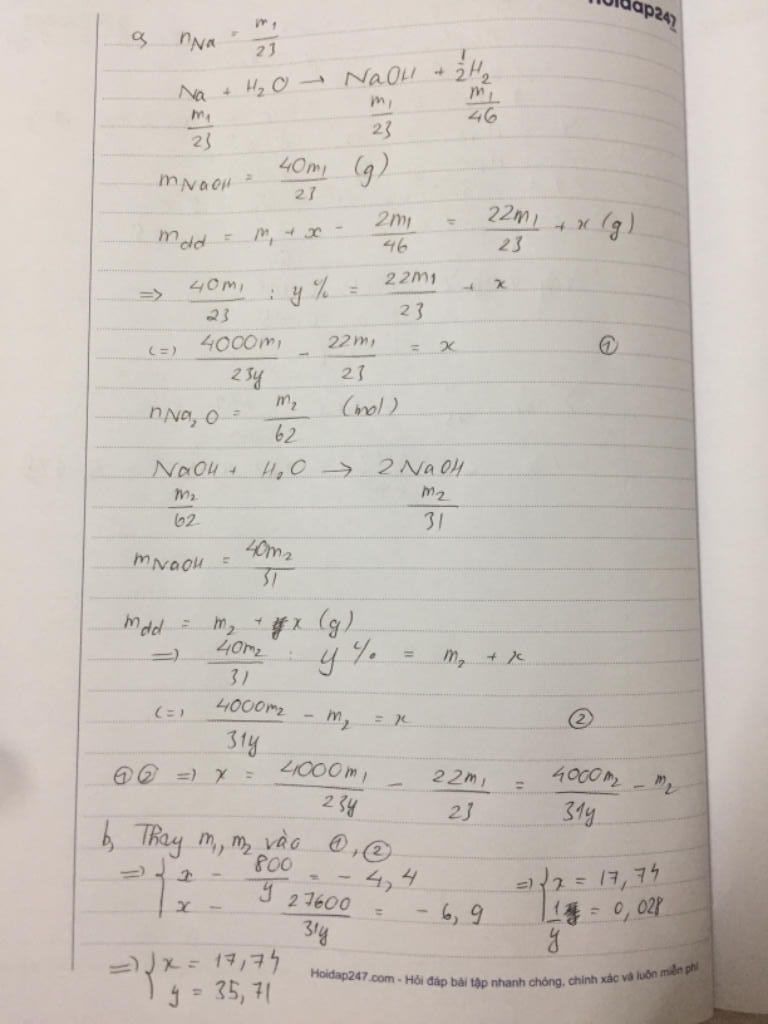 Hoidap247
a, nNa = m₁/23
Na + H₂O → NaOH + 1/2 H₂
m₁/23 m₁/23 m₁/46
mNaOH = 40m₁/23 (g)
mdd = m₁ + x - 2m₁/46 = 22m₁/23 + x (g)
=> 40m₁/23 : y% = 22m₁/23 + x
(=) 4000m₁/23y - 22m₁/23 = x ①
nNa₂O = m₂/62 (mol)
NaOH + H₂O → 2NaOH
m₂/62 m₂/31
mNaOH = 40m₂/31
mdd = m₂ + x (g)
=> 40m₂/31 : y% = m₂ + x
(=) 4000m₂/31y - m₂ = x ②
①② => x = 4000m₁/23y - 22m₁/23 = 4000m₂/31y - m₂
b, Thay m₁, m₂ vào ①, ②
=> { x - 800/y = -4,4 => { x = 17,74
x - 27600/31y = -6,9 1/y = 0,028
=> { x = 17,74
y = 35,71
Hoidap247.com - Hỏi đáp bài tập nhanh chóng, chính xác và luôn miễn phí